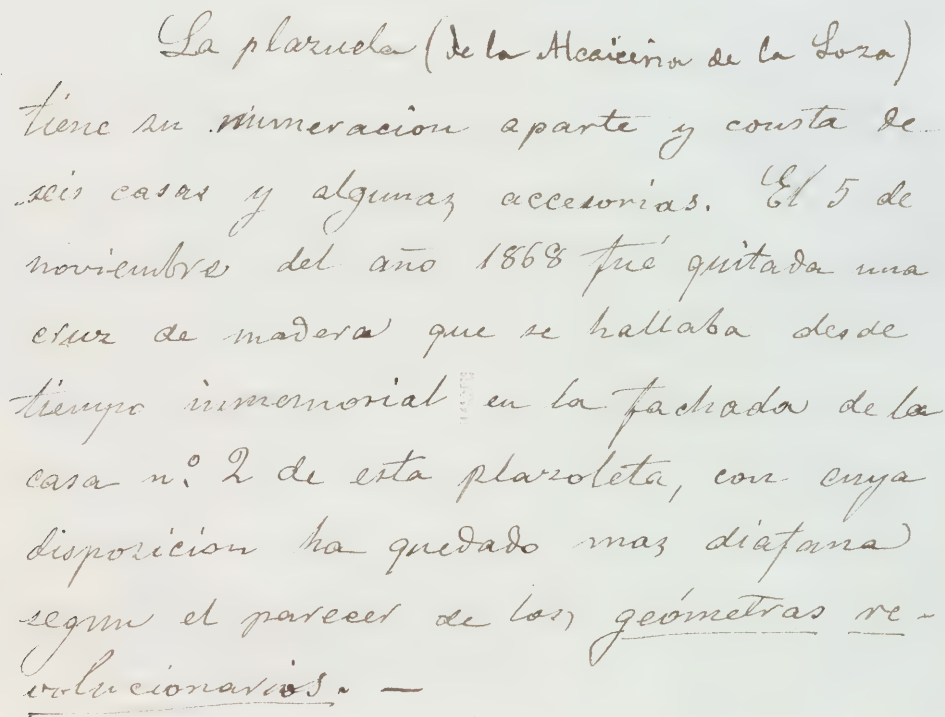 La plazuela (de la Alcaiceria de la Loza)
tiene su numeracion aparte y consta de
seis casas y algunas accesorias. El 5 de
noviembre del año 1868 fué quitada una
cruz de madera que se hallaba desde
tiempo inmemorial en la fachada de la
casa n.º 2 de esta plazoleta, con cuya
disposicion ha quedado mas diafana
segun el parecer de los geómetras re-
volucionarios. —